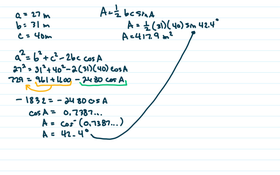 a = 27 m
b = 31 m
c = 40m
A = 1/2 bc sin A
A = 1/2 (31)(40) sin 42.4°
A = 417.9 m²
a² = b² + c² - 2bc cos A
27² = 31² + 40² - 2(31)(40) cos A
729 = 961 + 1600 - 2480 cos A
- 1832 = - 2480 cos A
cos A = 0.7387...
A = cos⁻¹ (0.7387...)
A = 42.4°